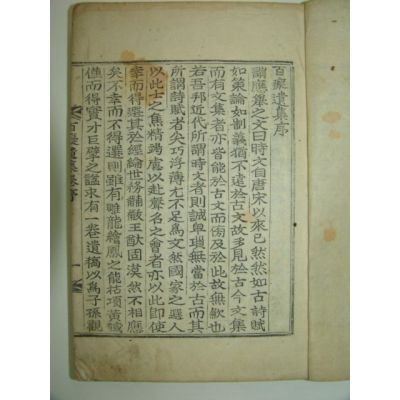 百癡遺集序
謂應擧之文曰時文自唐宋以來已然然如古詩賦
如策論如制義猶不遠於古文故多見於古今文集
而有文集者亦皆能於古文而傍及於此故無歉也
若吾邦近代所謂時文者則誠卑瑣無當於古而其
所謂詩賦者尖巧浮薄尤不足爲文然國家之選人
以此士之焦精竭慮以赴聲名之會者亦以此卽使
幸而得選其於經綸世務黼黻王猷固漠然不相應
矣不幸而不得選則雖有雕龍繪鳳之能枯項黃馘
僅而得實才巨擘之謚求有一卷遺稿以爲子孫觀
百癡遺集序 一